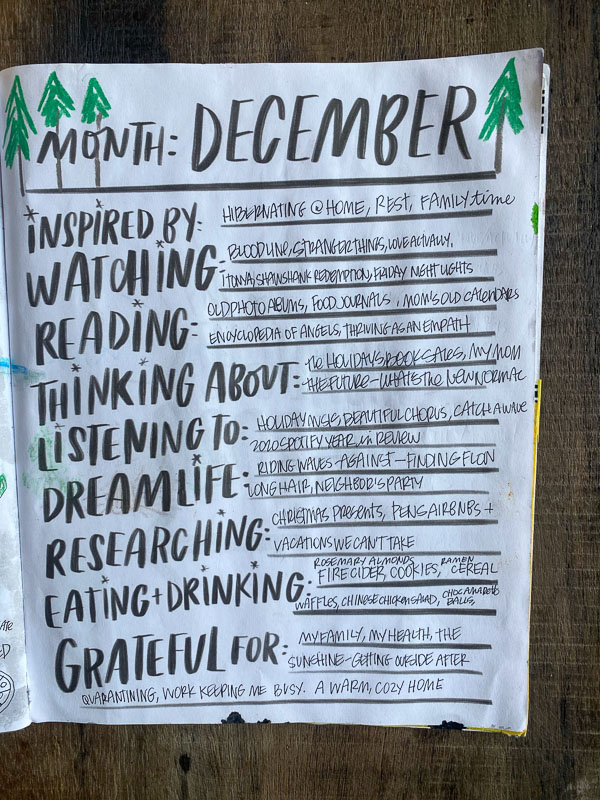 MONTH: DECEMBER
INSPIRED BY: HIBERNATING @ HOME, REST, FAMILY time
WATCHING: BLOODLINE, STRANGER THINGS, LOVE ACTUALLY,
I TONYA, SHAWSHANK REDEMPTION, FRIDAY NIGHT LIGHTS
READING: OLD PHOTO ALBUMS, FOOD JOURNALS, MOM'S OLD CALENDARS
ENCYCLOPEDIA OF ANGELS, THRIVING AS AN EMPATH
THINKING ABOUT: the HOLIDAYS, BOOK SALES, MY MOM
THE FUTURE - WHAT'S THE NEW NORMAL
LISTENING TO: HOLIDAY MUSIC, BEAUTIFUL CHORUS, CATCH A WAVE
2020 SPOTIFY YEAR in REVIEW
DREAMLIFE: RIDING WAVES - AGAINST - FINDING FLOW
LONG HAIR, NEIGHBOR'S PARTY
RESEARCHING: CHRISTMAS PRESENTS, AIRBNBS +
VACATIONS WE CAN'T TAKE
EATING + DRINKING: ROSEMARY ALMONDS, RAMEN
FIRE CIDER, COOKIES, CEREAL
WAFFLES, CHINESE CHICKEN SALAD, CHOC AMARETTO BALLS,
GRATEFUL FOR: MY FAMILY, MY HEALTH, THE
SUNSHINE - GETTING OUTSIDE AFTER
QUARANTINING, WORK KEEPING ME BUSY. A WARM, COZY HOME